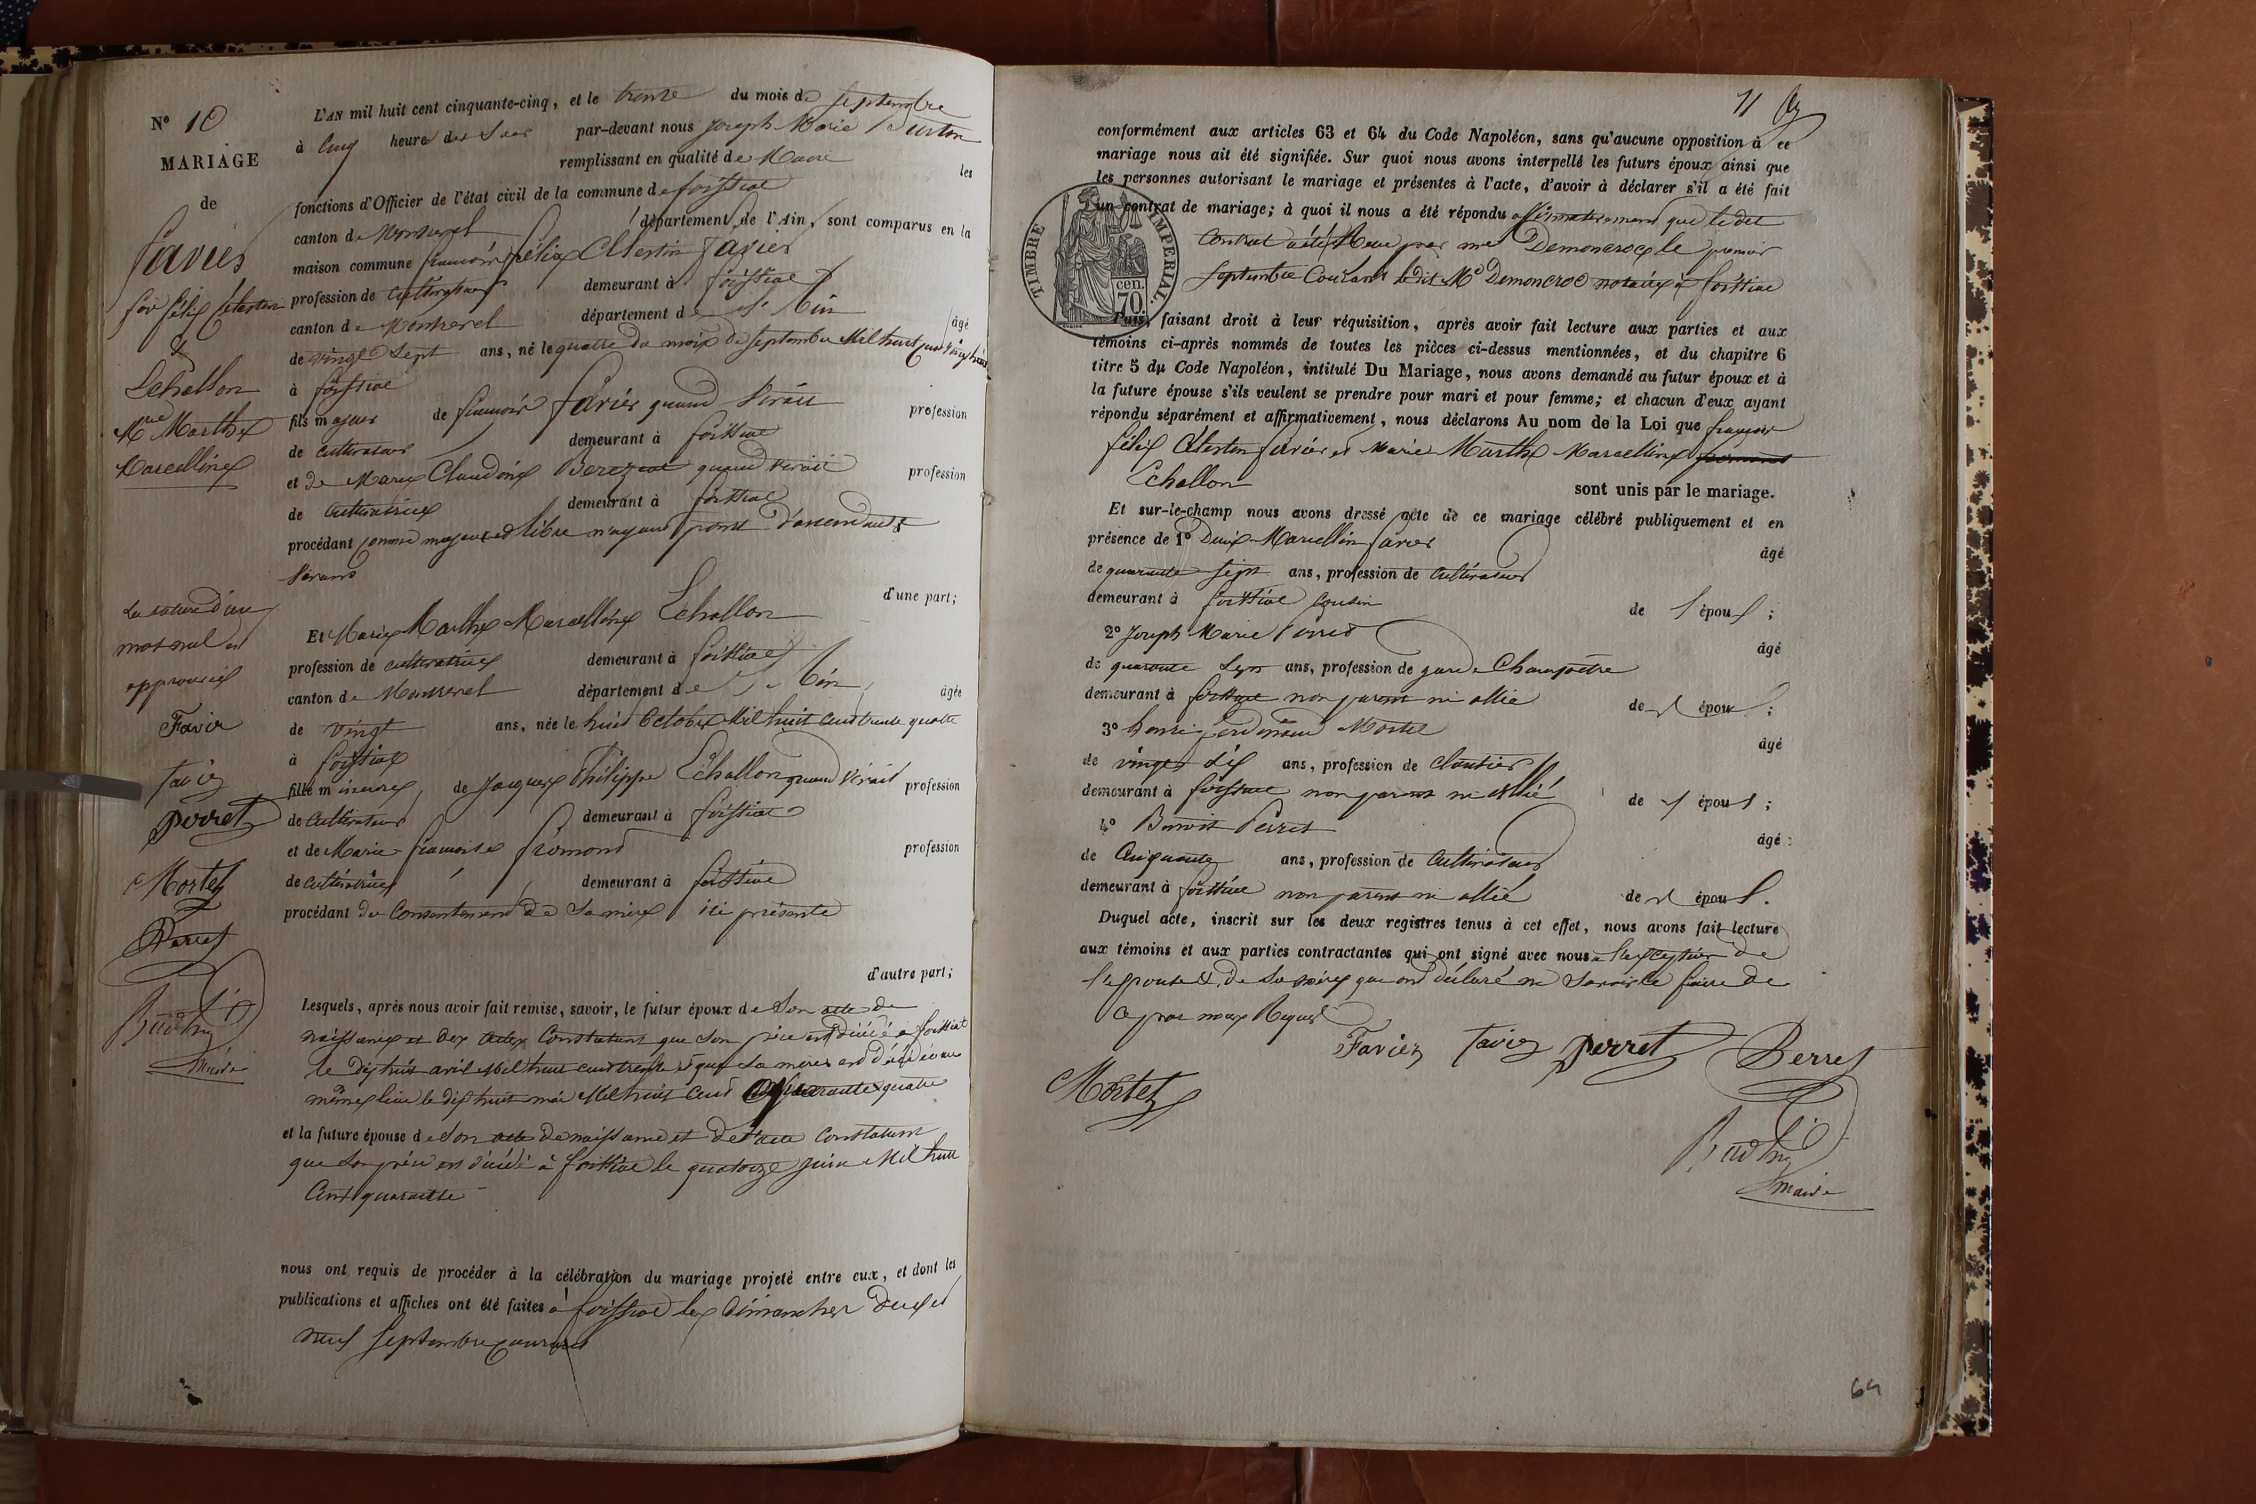 N° 10
MARIAGE
de
Favier
fois félix Célestin
&
Echallon
Mie Marthe
Marcelline
La rature d'un
mot nul est
approuvée
Favier
Favier
Perret
Mortel
Perret
maire
L'AN mil huit cent cinquante-cinq, et le trente du mois de septembre
à cinq heures du soir par-devant nous Joseph Marie
remplissant en qualité de Maire les
fonctions d'Officier de l'état civil de la commune de foissiat
canton de Montrevel département de l'Ain, sont comparus en la
maison commune françois félix Célestin favier
profession de cultivateur demeurant à foissiat
canton de Montrevel département de l'Ain âgé
de vingt sept ans, né le quatre du mois de septembre Mil huit cent vingt huit
à foissiat
fils majeur de françois favier quand vivait profession
de cultivateur demeurant à foissiat
et de Marie Claudine quand vivait profession
de cultivatrice demeurant à foissiat
procédant comme majeur et libre n'ayant point d'ascendants
vivants
d'une part;
Et Marie Marthe Marcelline Echallon
profession de cultivatrice demeurant à foissiat
canton de Montrevel département de l'Ain âgée
de vingt ans, née le huit Octobre Mil huit cent trente quatre
à foissiat
fille mineure de Jacques Philippe Echallon quand vivait profession
de cultivateur demeurant à foissiat
et de Marie françoise fromont profession
de cultivatrice demeurant à foissiat
procédant du Consentement de sa mère ici présente
d'autre part;
Lesquels, après nous avoir fait remise, savoir, le futur époux de son acte de
naissance et des actes constatant que son père est décédé à foissiat
le dix huit avril Mil huit cent trente et que sa mère est décédée au
même lieu le dix huit mai Mil huit cent quarante quatre
et la future épouse de son acte de naissance et de l'acte constatant
que son père est décédé à foissiat le quatorze juin Mil huit
cent quarante
nous ont requis de procéder à la célébration du mariage projeté entre eux, et dont les
publications et affiches ont été faites à foissiat les dimanches deux et
neuf septembre courant
11
conformément aux articles 63 et 64 du Code Napoléon, sans qu'aucune opposition à ce
mariage nous ait été signifiée. Sur quoi nous avons interpellé les futurs époux ainsi que
les personnes autorisant le mariage et présentes à l'acte, d'avoir à déclarer s'il a été fait
un contrat de mariage; à quoi il nous a été répondu affirmativement que le dit
Contrat a été Reçu par me Demoncroc le premier
septembre Courant le dit Me Demoncroc notaire à foissiat
TIMBRE IMPERIAL.
cen.
70.
Puis, faisant droit à leur réquisition, après avoir fait lecture aux parties et aux
témoins ci-après nommés de toutes les pièces ci-dessus mentionnées, et du chapitre 6
titre 5 du Code Napoléon, intitulé Du Mariage, nous avons demandé au futur époux et à
la future épouse s'ils veulent se prendre pour mari et pour femme; et chacun d'eux ayant
répondu séparément et affirmativement, nous déclarons Au nom de la Loi que françois
félix Célestin favier et Marie Marthe Marcelline fromont
Echallon
sont unis par le mariage.
Et sur-le-champ nous avons dressé acte de ce mariage célébré publiquement et en
présence de 1° Denis Marcellin favier âgé
de quarante sept ans, profession de cultivateur
demeurant à foissiat cousin de l'époux;
2° Joseph Marie Perret âgé
de quarante sept ans, profession de garde Champêtre
demeurant à foissiat non parent ni allié des époux;
3° henri ferdinand Mortel âgé
de vingt six ans, profession de cloutier
demeurant à foissiat non parent ni allié des époux;
4° Benoit Perret âgé
de cinquante ans, profession de cultivateur
demeurant à foissiat non parent ni allié des époux.
Duquel acte, inscrit sur les deux registres tenus à cet effet, nous avons fait lecture
aux témoins et aux parties contractantes qui ont signé avec nous à l'exception de
l'épouse & de sa mère qui ont déclaré ne savoir le faire de
ce par nous Requis
Favier Favier Perret Perret
Mortel
maire
64